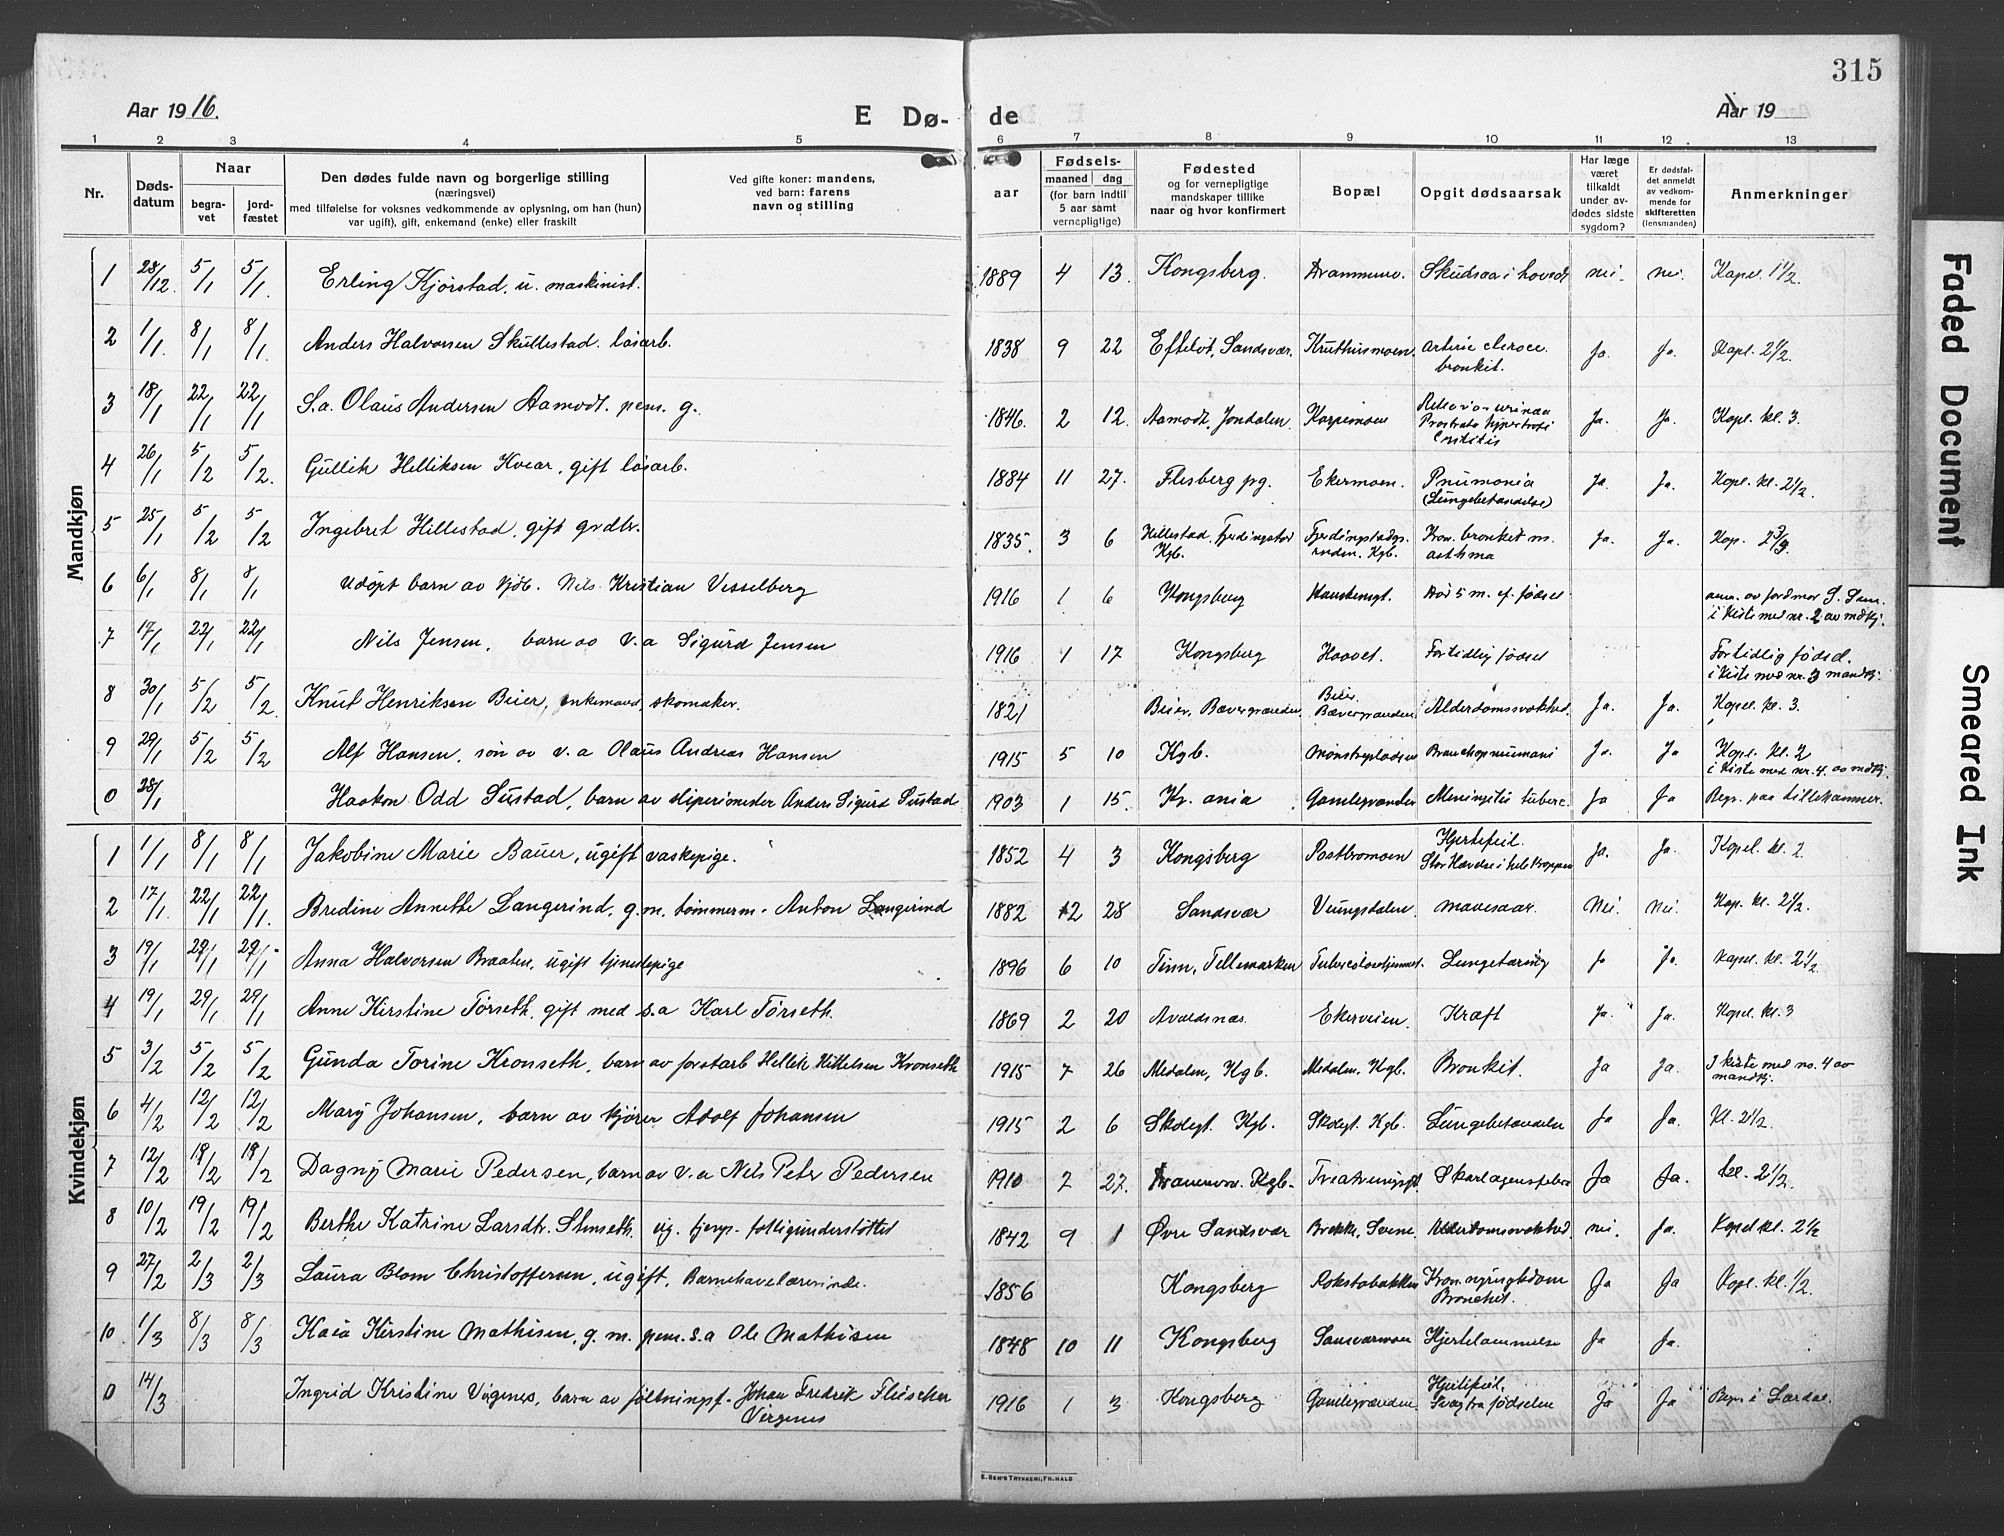 315
Aar 1916.
E Dø-
de
Aar 19
1 2 3 4 5 6 7 8 9 10 11 12 13
Nr.
Døds-
datum
Naar
begra-
vet
jord-
fæstet
Den dødes fulde navn og borgerlige stilling
(næringsvei)
med tilføielse for voksnes vedkommende av oplysning, om han (hun)
var ugift), gift, enkemand (enke) eller fraskilt
Ved gifte koner: mandens,
ved barn: farens
navn og stilling
aar
Fødsels-
maaned dag
(for barn indtil
5 aar samt
vernepligtige)
Fødested
og for vernepligtige
mandskaper tillike
naar og hvor konfirmert
Bopæl
Opgit dødsaarsak
Har læge
været
tilkaldt
under av-
dødes sidste
sygdom?
Er dødsfal-
det anmeldt
av vedkom-
mende for
skifteretten
(lensmanden)
Anmerkninger
Mandkjøn
1 28/12. 5/1 5/1. Erling Kjørstad, u. maskinist. 1889 4 13. Kongsberg. Drammenv. Skudsaa i hovedt nei. nei. Kapel 1 1/2.
2 1/1. 8/1 8/1. Anders Halvorsen Skullestad. løsarb. 1838 9 22 Efteløt, Sandsvær. Kruthusmoen. Ja. Ja. Kapl. 2 1/2.
bronkit.
3 18/1 22/1 22/1 S.a. Olaus Andersen Aamodt. pens. g. 1846. 2 12. Aamodt, Jondalen. Korpemoen Ja. Ja. Kapl. kl. 3.
Prostata hypertrofi
4 26/1 5/2 5/2. Gullik Helliksen Kvear, gift løsarb. 1884 11 27. Flesberg pg. Ekermoen. Pnumonia Ja. Ja. Kopl. kl. 2 1/2.
(Lungebetændelse)
5 25/1 5/2 5/2 Ingebret Hillestad, gift grdbr. 1835. 3 6 Hillestad, Kron. bronkit m. Ja. Ja. Kap.
Kgb. Kgb. asthma
6 6/1 8/1 8/1 Udøpt barn av kjøb. Nils Kristian Vesselberg 1916 1 6 Kongsberg Død 5 m. ef. fødsel anm. av jordmor
i kiste med nr. 2 av mdkj.
7 17/1 22/1 22/1 Nils Jensen, barn av v.a Sigurd Jensen 1916 1 17 Kongsberg Haavet. Fortidlig fødsel Fortidlig fødsel.
i kiste med nr. 3 mandkj.
8 30/1 5/2 5/2. Knut Henriksen Beier, enkemand, skomaker. 1821 Beier, Bævergrænden Beier Alderdomssvakhed. Ja. Ja. Kapel. kl. 3.
Bævergrænden
9 29/1 5/2 5/2 Alf Hansen, søn av v.a Olaus Andreas Hansen 1915 5 10 Kgb. Mønstrepladsen Ja. Ja Kapel. kl. 2
i kiste med nr. 4. av mdkj.
0 28/1 Haakon Odd Sustad, barn av sliperimester Anders Sigurd Sustad 1903 1 15. Kr. ania Gamlegrænden Meningitis tuberc. Ja Ja Begr. paa Lillehammer.
Kvindekjøn
1 1/1 8/1 8/1 Jakobine Marie Bauer, ugift vaskepige. 1852 4 3 Kongsberg Postbromoen Hjertefeil. Ja. Ja. Kapel. kl. 2
2 17/1. 22/1 22/1. Bredine Annette Langerind, g.m. tømmerm. Anton Langerind 1882 12 28 Sandsvær Veungsdalen mavesaar. Nei. Nei. Kap. kl. 2 1/2.
3 19/1 29/1 29/1 Anna Halvorsen Braaten, ugift tjenestepige 1896 6 10 Tinn, Tellemarken Lungetæring Ja Ja. Kapel. kl. 2 1/2
4 19/1 29/1 29/1 Anne Kirstine Tørseth, gift med s.a Karl Tørseth. 1869 2 20 Avaldsnæs Ekerveien. Kræft Ja. Ja. Kapel. kl. 3
5 3/2 5/2 5/2 Gunda Torine Kronseth, barn av forstarb Hellik Kittelsen Kronseth 1915 7 26 Medalen, Kgb. Medalen, Kgb. Bronkit. Ja Ja. I kiste med no. 4 av
mandkj.
6 4/2 12/2 12/2 Mary Johansen, barn av kjører Adolf Johansen 1915 2 6 Skolegt. Kgb. Skolegt. Kgb. Lungebetændelse Ja Ja. Kl. 2 1/2.
7 12/2 19/2 19/2 Dagny Marie Pedersen, barn av v.a Nils Peter Pedersen 1910 7 27. Drammenv. Kgb. Skarlagensfeber Ja Ja. kl. 2 1/2.
8 10/2 19/2 19/2 Berthe Katrine Larsdtr. Stenseth. ug. tjenp. fattigunderstøttet 1842 9 1 Øvre Sandsvær Brekke, Svene Alderdomssvakhed nei. Ja. Kapel kl. 2 1/2
9 27/2 2/3 2/3 Laura Blom Christoffersen, ugift, Barnehavelærerinde. 1856 Kongsberg Rokstabakken Ja Ja Kapl. kl. 1/2
Bronchit.
10 1/3 8/3 8/3 Kaia Kirstine Mathisen, g.m. pens. s.a Ole Mathisen 1848 10 11 Kongsberg Sansværmoen Hjertelammelse Ja Ja.
0 14/3 Ingrid Kristine Vigenes, barn av Johan Fredrik Fleischer 1916 1 3 Kongsberg Gamlegrænden. Hjertefeil, Ja Ja Begr. i Lærdal.
Virgenes Svag fra fødselen
E. SEM'S TRYKKERI, FR.HALD
Faded Document
Smeared Ink